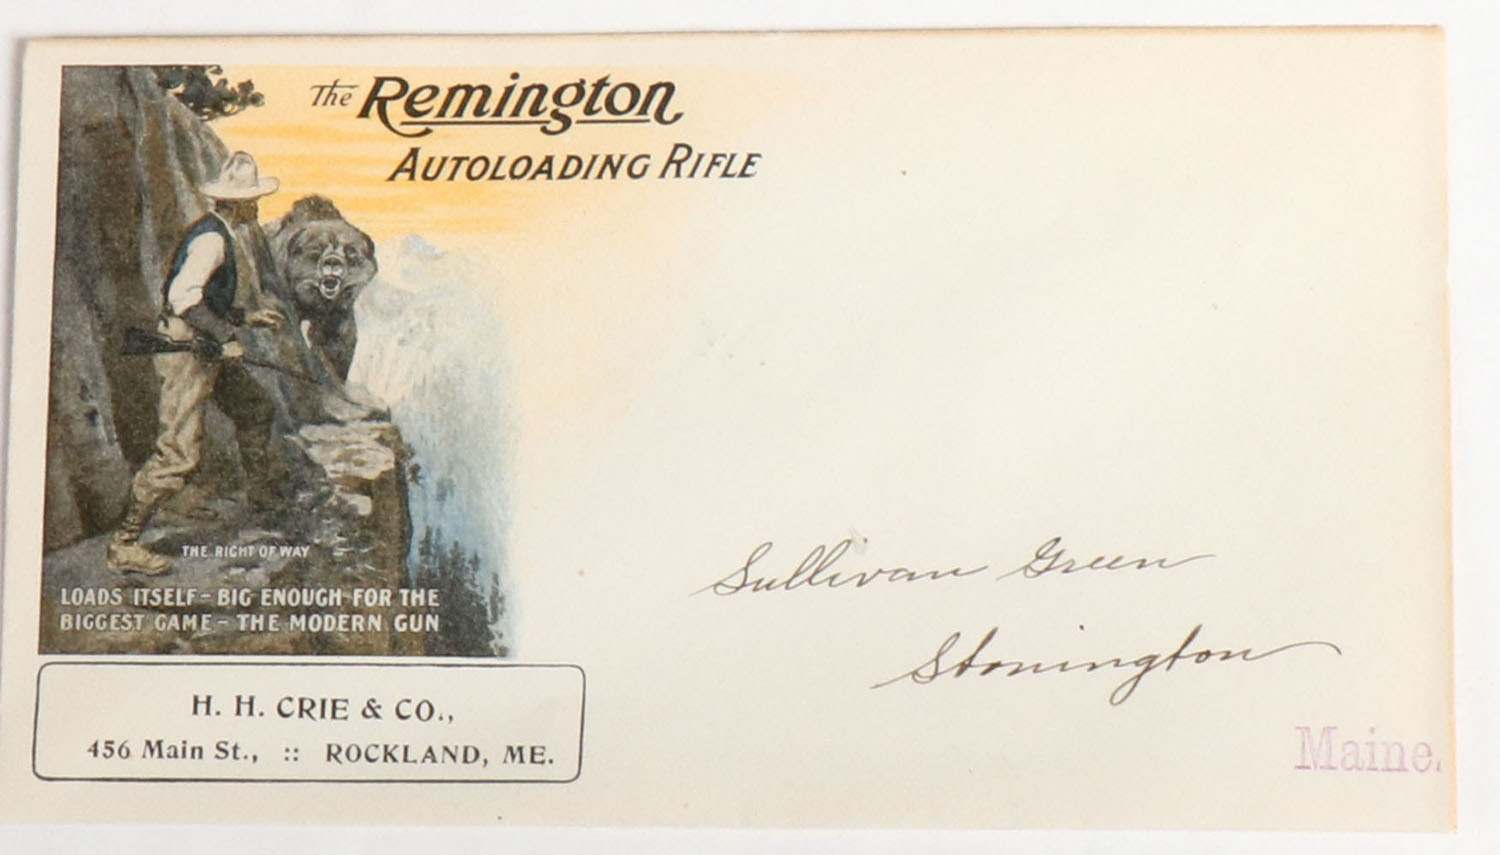 The Remington
AUTOLOADING RIFLE
THE RIGHT OF WAY
LOADS ITSELF - BIG ENOUGH FOR THE
BIGGEST GAME - THE MODERN GUN
H. H. CRIE & CO.,
456 Main St., :: ROCKLAND, ME.
Sullivan Green
Stonington
Maine.